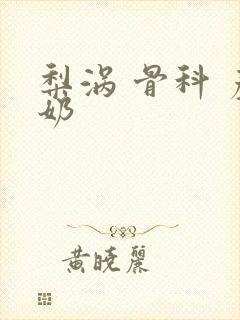 梨涡 骨科
奶
黄晓麗